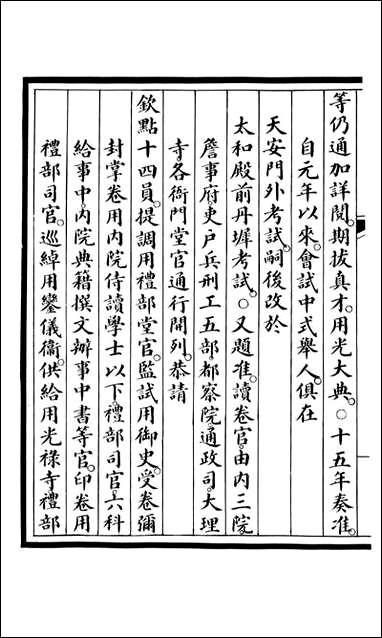 等仍通加詳閱。期拔真才。用光大典。○十五年奏准。
自元年以來。會試中式舉人。俱在
天安門外考試。嗣後改於
太和殿前丹墀考試。○又題准。讀卷官。由內三院。
詹事府。吏戶兵刑工五部。都察院。通政司。大理
寺。各衙門堂官通行開列。恭請
欽點十四員。提調用禮部堂官。監試用御史。受卷彌
封掌卷用內院侍讀學士以下。禮部司官。六科
給事中。內院典籍撰文辦事中書等官。印卷用
禮部司官。巡綽用鑾儀衛。供給用光祿寺禮部